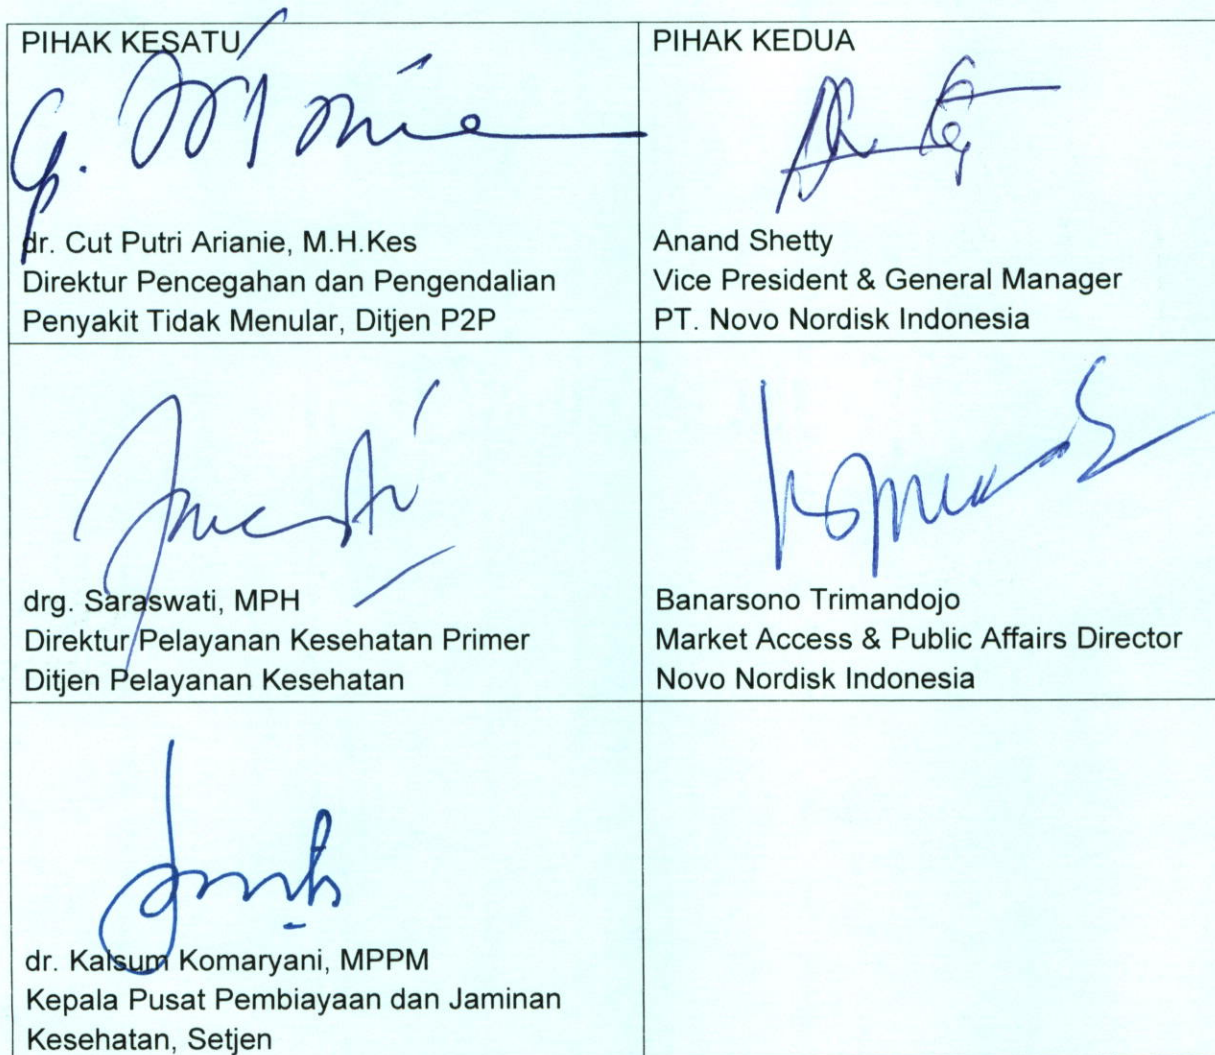 PIHAK KESATU
dr. Cut Putri Arianie, M.H.Kes
Direktur Pencegahan dan Pengendalian
Penyakit Tidak Menular, Ditjen P2P
PIHAK KEDUA
Anand Shetty
Vice President & General Manager
PT. Novo Nordisk Indonesia
drg. Saraswati, MPH
Direktur Pelayanan Kesehatan Primer
Ditjen Pelayanan Kesehatan
Banarsono Trimandojo
Market Access & Public Affairs Director
Novo Nordisk Indonesia
dr. Kalsum Komaryani, MPPM
Kepala Pusat Pembiayaan dan Jaminan
Kesehatan, Setjen